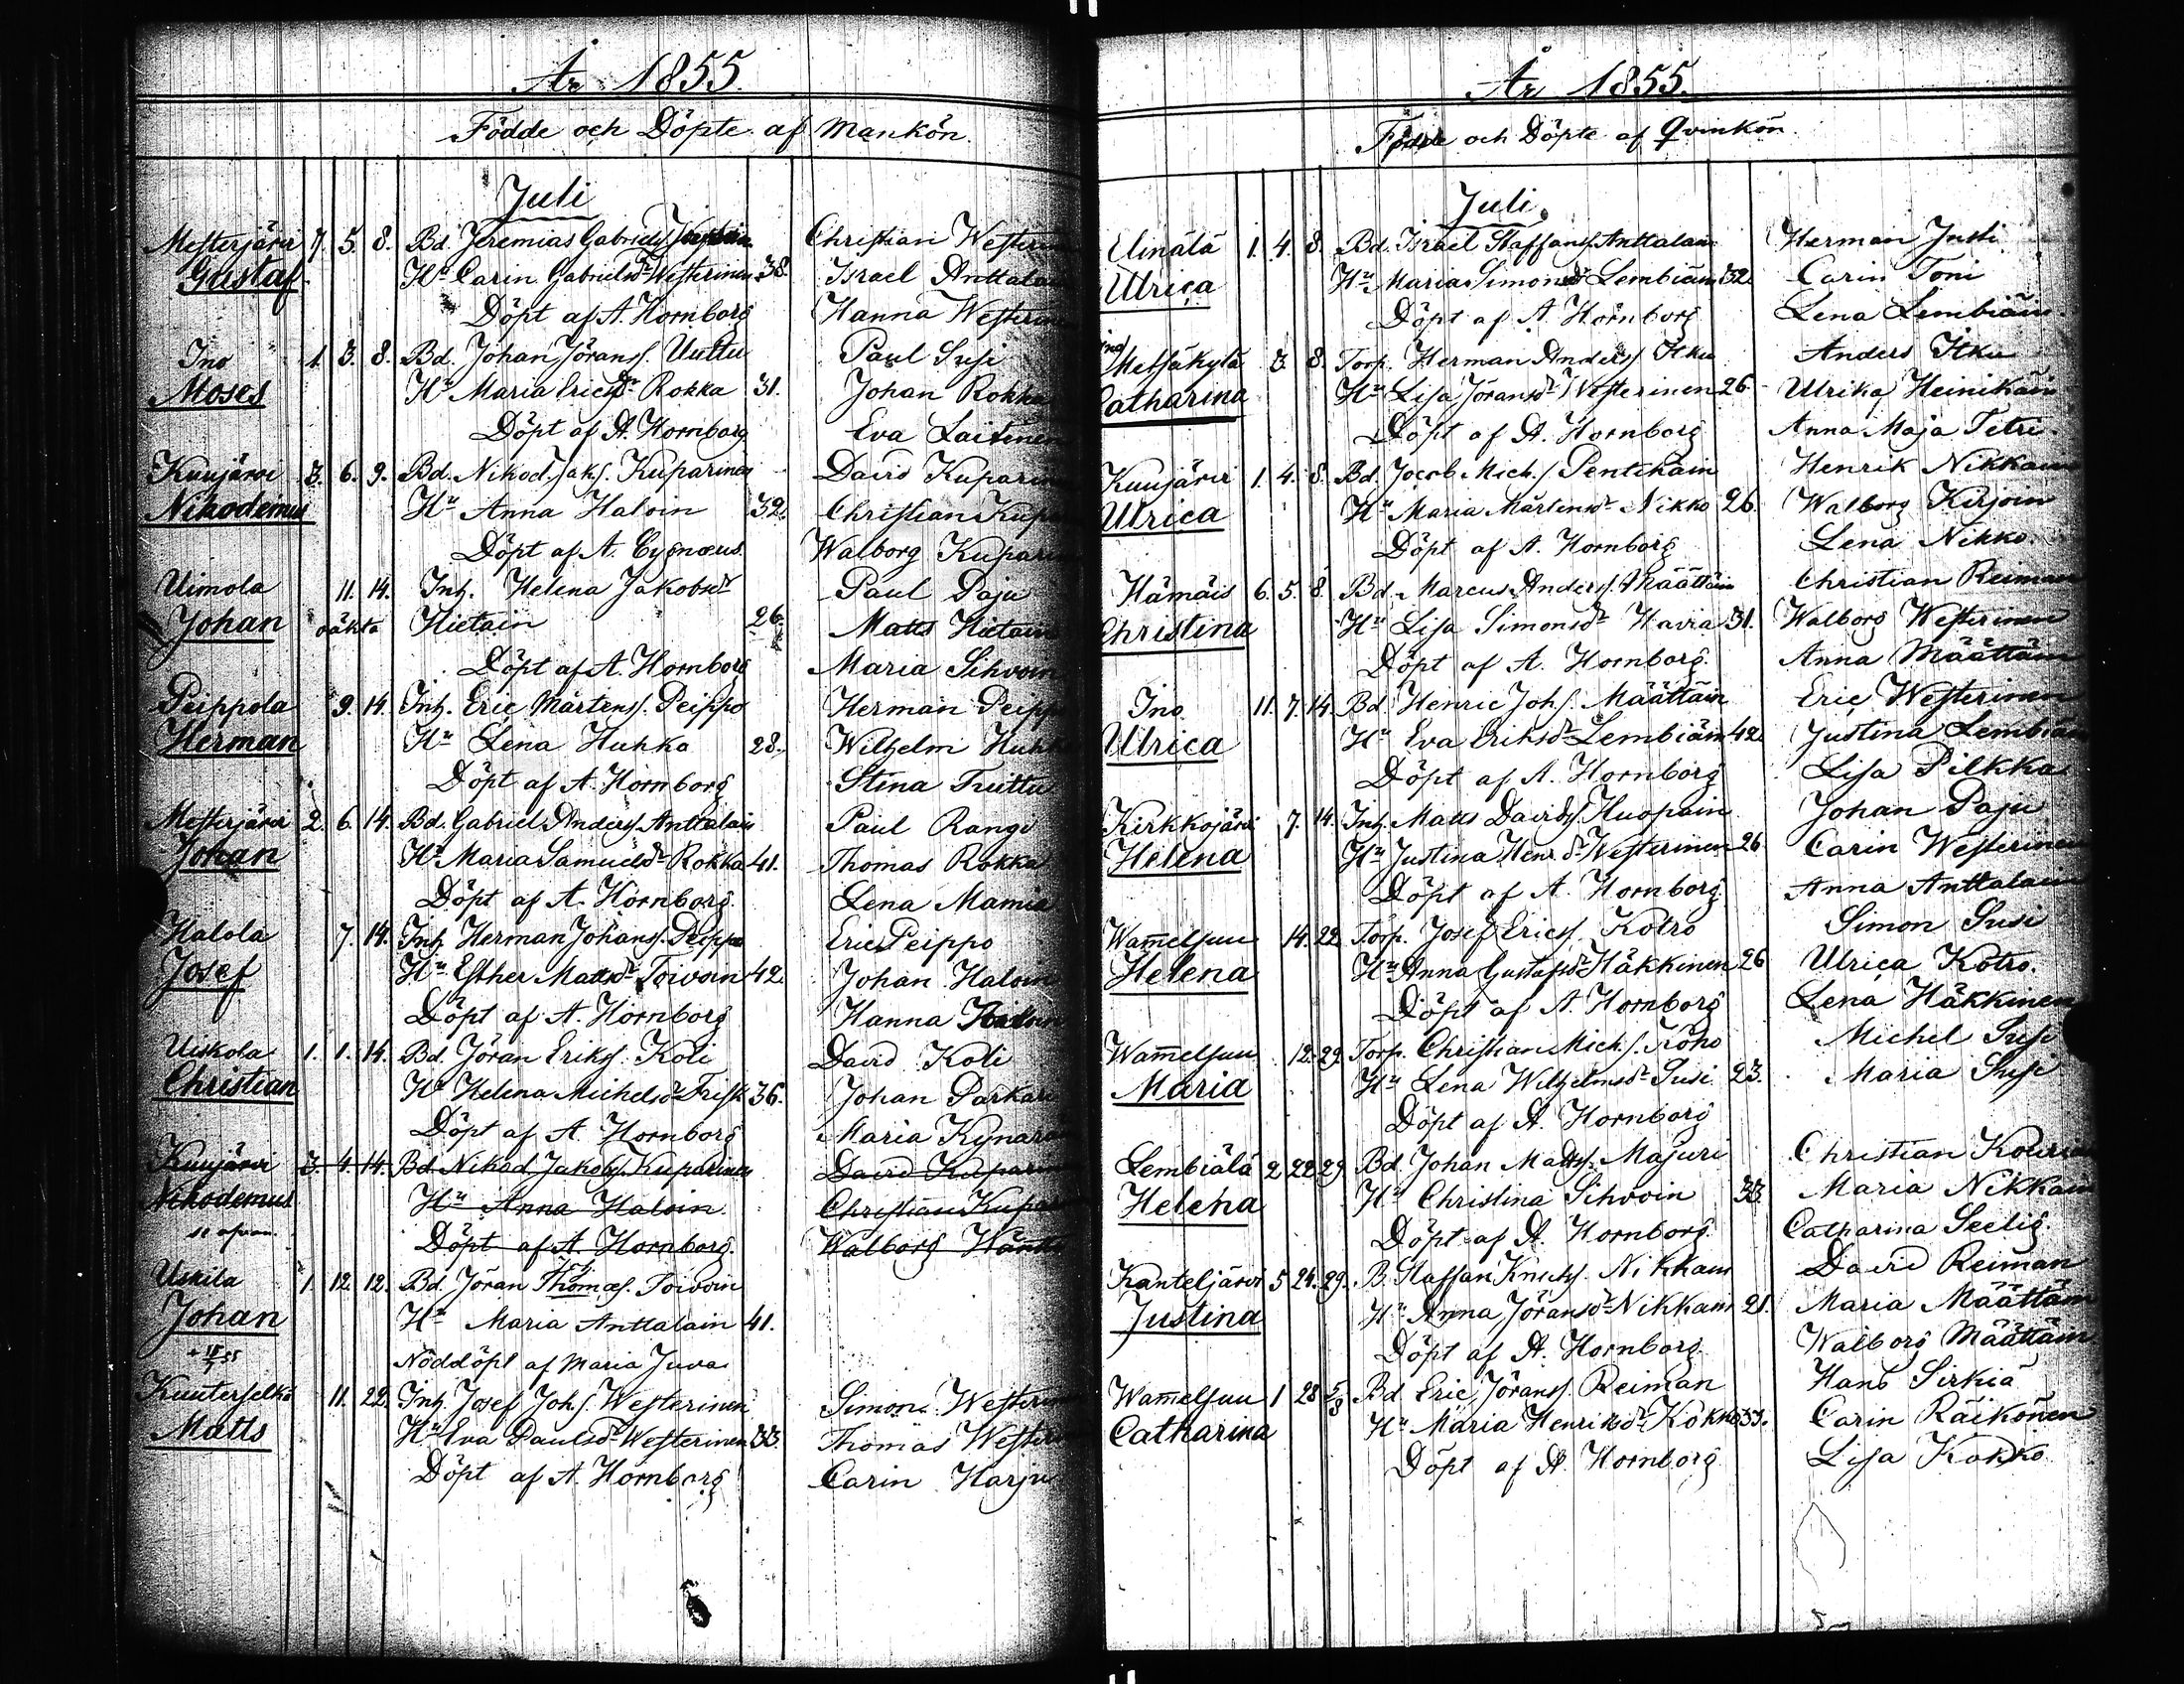 År 1855.
Födde och Döpte af Mankön.
Juli
Mesterjärvi 7. 5. 8. Bd. Jeremias Gabriels. Christian Westerinen
Gustaf Hu Carin Gabrielsdr Westerinen 38. Israel Anttalain
Döpt af A. Hornborg Hanna Westerinen
Ino 1. 3. 8. Bd. Johan Jörans. Uuttu Paul Susi
Moses Hu Maria Ericsdr Rokka 31. Johan Rokka
Döpt af A. Hornborg Eva Laitinen
Kuujärvi 3. 6. 9. Bd. Nikod. Jaks. Kuparinen David Kuparinen
Nikodemus Hu Anna Haloin 32. Christian Kup
Döpt af A. Cygnæus. Walborg Kuparinen
Uimola 11. 14. Inh. Helena Jakobsdr Paul Paju
Johan oäkta Hietain 26. Matts Hietain
Döpt af A. Hornborg Maria Sihvoin
Peippola 9. 14. Inh. Eric Mårtens. Peippo Herman Peippo
Herman Hu Lena Huhka 28. Wilhelm Huhka
Döpt af A. Hornborg Stina Truttu
Mesterjärvi 2. 6. 14. Bd. Gabriel Anders. Anttalain Paul Rangi
Johan Hu Maria Samuelsdr Rokka 41. Thomas Rokka
Döpt af A. Hornborg. Lena Mamia
Halola 7. 14. Inh. Herman Johans. Peippo Eric Peippo
Josef Hu Esther Mattsdr Toivoin 42. Johan Haloin
Döpt af A. Hornborg Hanna
Uiskola 1. 1. 14. Bd. Jöran Eriks. Koli David Koli
Christian Hu Helena Michelsdr Frisk 36. Johan Parkari
Döpt af A. Hornborg Maria
Kuujärvi 3. 4. 14. Bd. Nikod. Jakobs. Kuparinen David Kuparinen
Nikodemus Hu Anna Haloin. Christian Kupa
se ofvan. Döpt af A. Hornborg. Walborg
Uskila 1. 12. 12. Bd. Jöran Thomæs. Toivoin
Johan Hu Maria Anttalain 41.
+ 18/7 55 Nöddöpt af Maria Juva
Kuuterselkä 11. 22. Inh. Josef Johs. Westerinen Simon Westerinen
Matts Hu Eva Paulsdr Westerinen 33. Thomas Westerinen
Döpt af A. Hornborg Carin Harju
År 1855.
Födde och Döpte af Qvinkön.
Juli.
Elinälä 1. 4. 8. Bd. Israel Staffans. Anttalain Herman Justi
Ulrica Hu Maria Simonsdr Lembiäin 32. Carin Toni
Döpt af A. Hornborg Lena Lembiäin.
Ino Metsäkylä 3. 8. Torp. Herman Anders. Itku Anders Itku
Catharina Hu Lisa Jöransdr Westerinen 26. Ulrika Heinikäin
Döpt af A. Hornborg Anna Maja Tetri.
Kuujärvi 1. 4. 8. Bd. Jacob Mich.s. Pentikäin Henrik Nikkain
Ulrica Hu Maria Mårtensdr Nikko 26. Walborg Kirjoin
Döpt af A. Hornborg Lena Nikko.
Hämäis 6. 5. 8. Bd. Marcus Anders. Määttäin Christian Reiman
Christina Hu Lisa Simonsdr Havia 31. Walborg Westerinen
Döpt af A. Hornborg. Anna Määttäin
Ino 11. 7. 14. Bd. Henric Johs. Määttäin Eric Westerinen
Ulrica Hu Eva Eriksdr Lembiäin 42. Justina Lembiäin
Döpt af A. Hornborg Lisa Pilkka
Kirkkojärvi 7. 14. Inh. Matts Davids. Huopain Johan Paju
Helena Hu Justina Henr.dr Westerinen 26 Carin Westerinen
Döpt af A. Hornborg Anna Anttalain
Wammelsuu 14. 22. Torp. Josef Erics. Kotro Simon Susi
Helena Hu Anna Gustafsdr Häkkinen 26 Ulrica Kotro.
Döpt af A. Hornborg Lena Häkkinen
Wammelsuu 12. 29. Torp. Christian Mich.s. Roho Michel Susi
Maria Hu Lena Wilhelmsdr Susi 23. Maria Susi
Döpt af A. Hornborg
Lembiälä 2 22. 29. Bd. Johan Matts. Majuri Christian
Helena Hu Christina Sihvoin 33. Maria Nikkain
Döpt af A. Hornborg. Catharina Seelig.
Kanteljärvi 5 24. 29. B. Staffan Knuts. Nikkain David Reiman
Justina Hu Anna Jöransdr Nikkain 21. Maria Määttäin
Döpt af A. Hornborg. Walborg Määttäin
Wammelsuu 1 28 5/8 Bd. Eric Jörans. Reiman Hans Sirkiä
Catharina Hu Maria Henriksdr Kokko 33. Carin Räikönen
Döpt af A. Hornborg Lisa Kokko